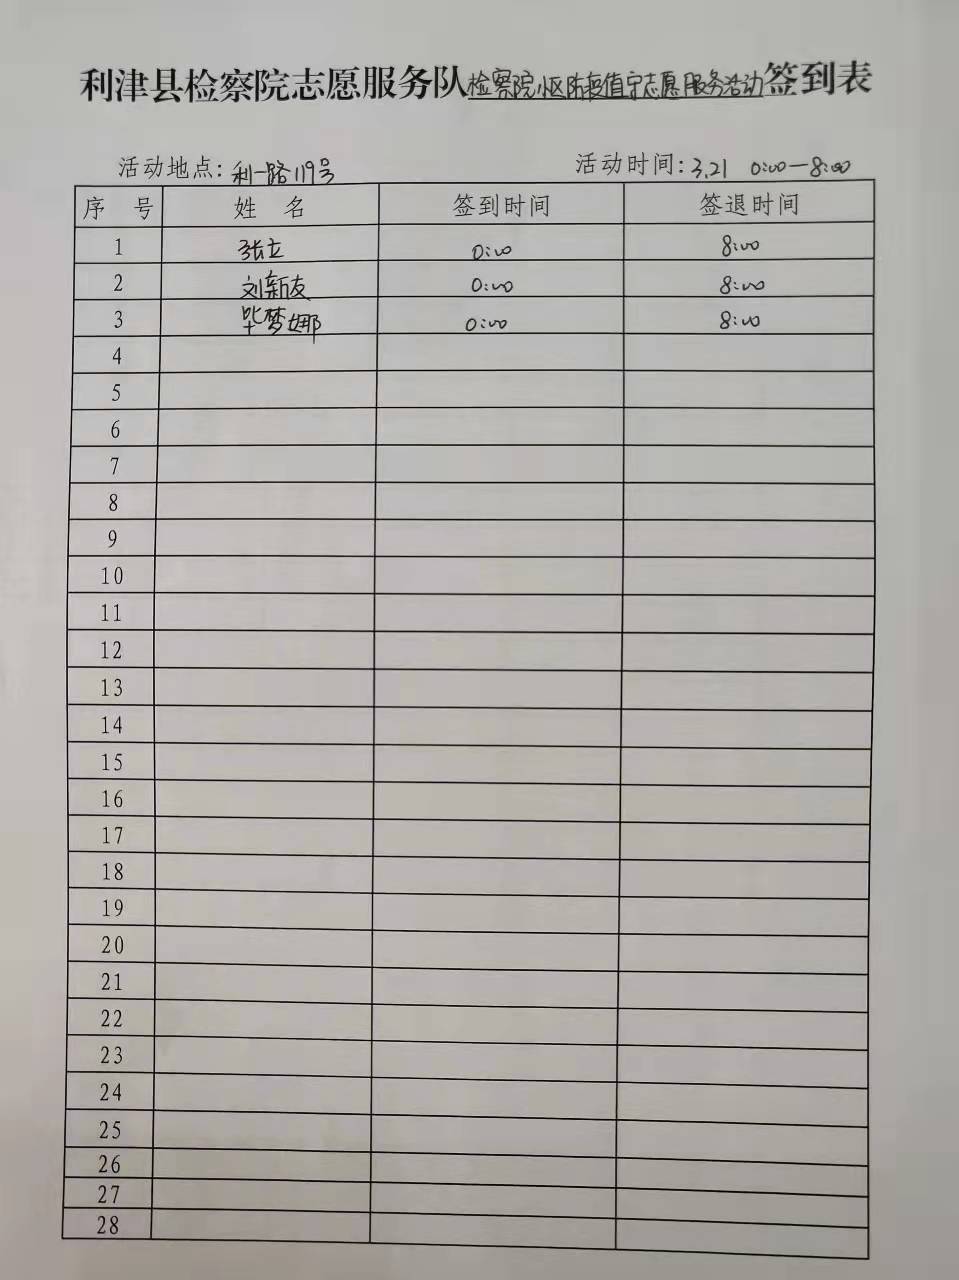 利津县检察院志愿服务队检察院小区防疫值守志愿服务活动签到表
活动地点:利一路119号 活动时间:3.21 0:00—8:00
序 号 姓 名 签到时间 签退时间
1 张立 0:00 8:00
2 刘新友 0:00 8:00
3 毕梦娜 0:00 8:00
4
5
6
7
8
9
10
11
12
13
14
15
16
17
18
19
20
21
22
23
24
25
26
27
28